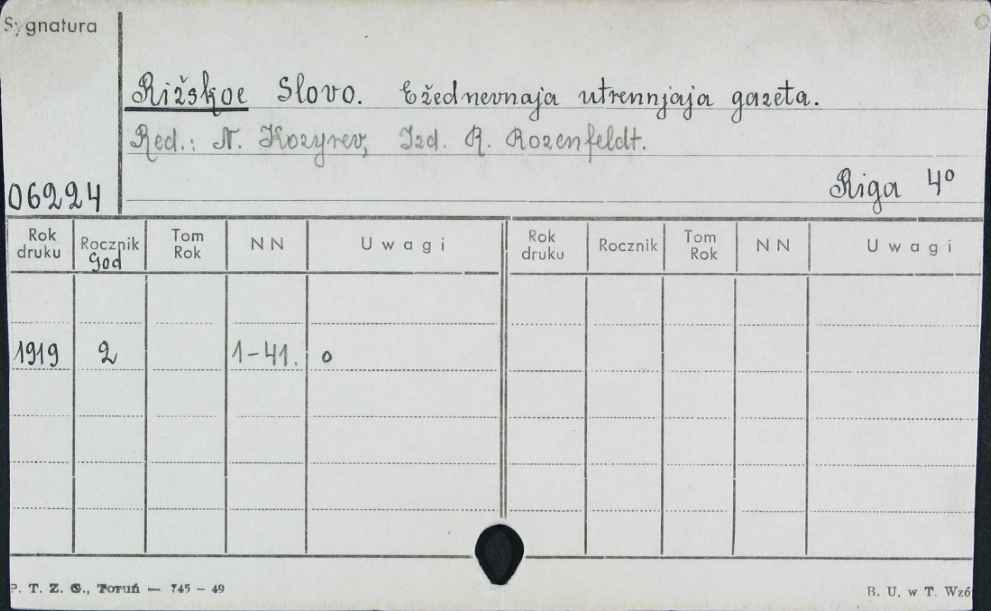 Sygnatura
Rižskoe Slovo. Ežednevnaja utrennjaja gazeta.
Red.: N. Kozyrev, Izd. R. Rozenfeldt.
06224
Riga 4º
Rok druku Rocznik God Tom Rok NN Uwagi Rok druku Rocznik Tom Rok NN Uwagi
1919 2 1-41. o
P. T. Z. G., Toruń — 745 — 49
B. U. w T. Wzó